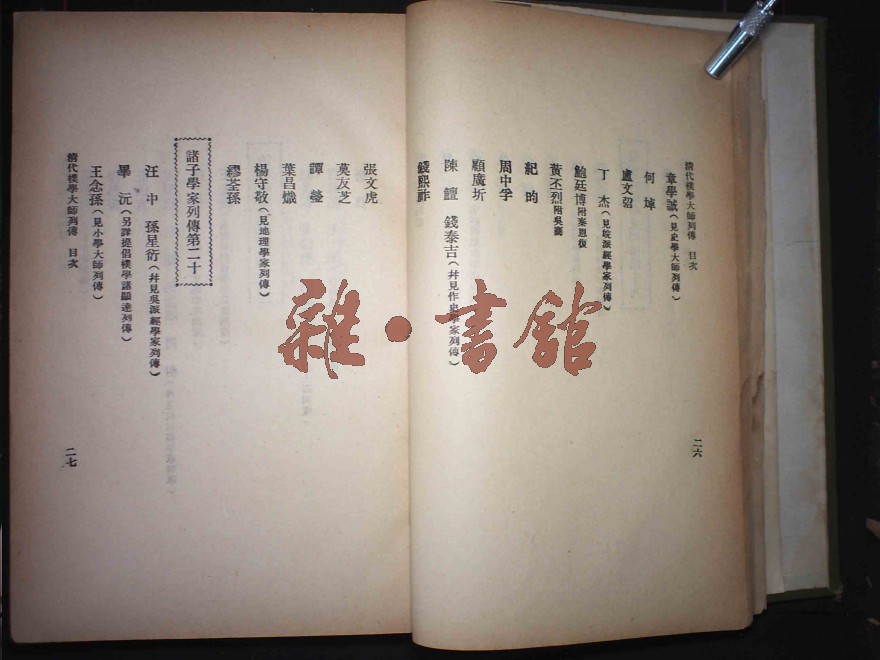 清代樸學大師列傳 目次
章學誠(見史學大師列傳)
何焯
盧文弨
丁杰(見皖派經學家列傳)
鮑廷博附秦恩復
黃丕烈附吳騫
紀昀
周中孚
顧廣圻
陳鱣 錢泰吉(幷見作史學家列傳)
錢熙祚
二六
張文虎
莫友芝
譚瑩
葉昌熾
楊守敬(見地理學家列傳)
繆荃孫
諸子學家列傳第二十
汪中 孫星衍(幷見吳派經學家列傳)
畢沅(另詳提倡樸學諸顯達列傳)
王念孫(見小學大師列傳)
清代樸學大師列傳 目次
二七
雜·書館